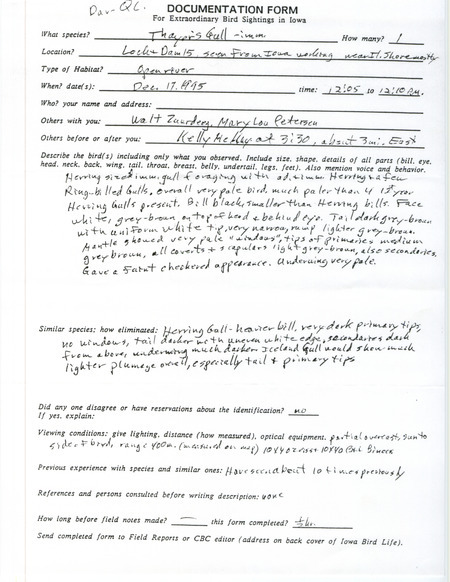 Dav-QC.
DOCUMENTATION FORM
For Extraordinary Bird Sightings in Iowa
What species? Thayer's Gull - imm. How many? 1
Location? Lock & Dam 15, seen from Iowa working near Il. Shore mostly
Type of Habitat? Open river
When? date(s): Dec. 17, 1995 time: 12:05 to 12:10 P.M.
Who? your name and address:
Others with you: Walt Zuurdeeg, Mary Lou Petersen
Others before or after you: Kelly McKay at 3:30, about 3 mi. East
Describe the bird(s) including only what you observed. Include size, shape, details of all parts (bill, eye,
head, neck, back, wing, tail, throat, breast, belly, undertail, legs, feet). Also mention voice and behavior.
Herring size imm. gull foraging with ad. & imm. Herring & a few
Ring-billed Gulls, overall very pale bird, much paler than 4 1st year
Herring Gulls present. Bill black, smaller than Herring bills. Face
white, grey-brown on top of head & behind eye. Tail dark grey-brown
with uniform white tip, very narrow, rump lighter grey-brown.
Mantle showed very pale "windows", tips of primaries medium
grey brown, all coverts & scapulars light grey-brown, also secondaries.
Gave a faint checkered appearance. Underwing very pale.
Similar species: how eliminated: Herring Gull - heavier bill, very dark primary tips,
no windows, tail darker with uneven white edge, secondaries dark
from above, underwing much darker. Iceland Gull would show much
lighter plumage overall, especially tail & primary tips
Did any one disagree or have reservations about the identification? no
If yes, explain:
Viewing conditions: give lighting, distance (how measured), optical equipment. partial overcast, sun to
side of bird, range 400m. (measured on map) 10x40 Zeiss & 10x40 B&L Binocs
Previous experience with species and similar ones: Have seen about 10 times previously
References and persons consulted before writing description: none
How long before field notes made? — this form completed? ½ hr.
Send completed form to Field Reports or CBC editor (address on back cover of Iowa Bird Life).